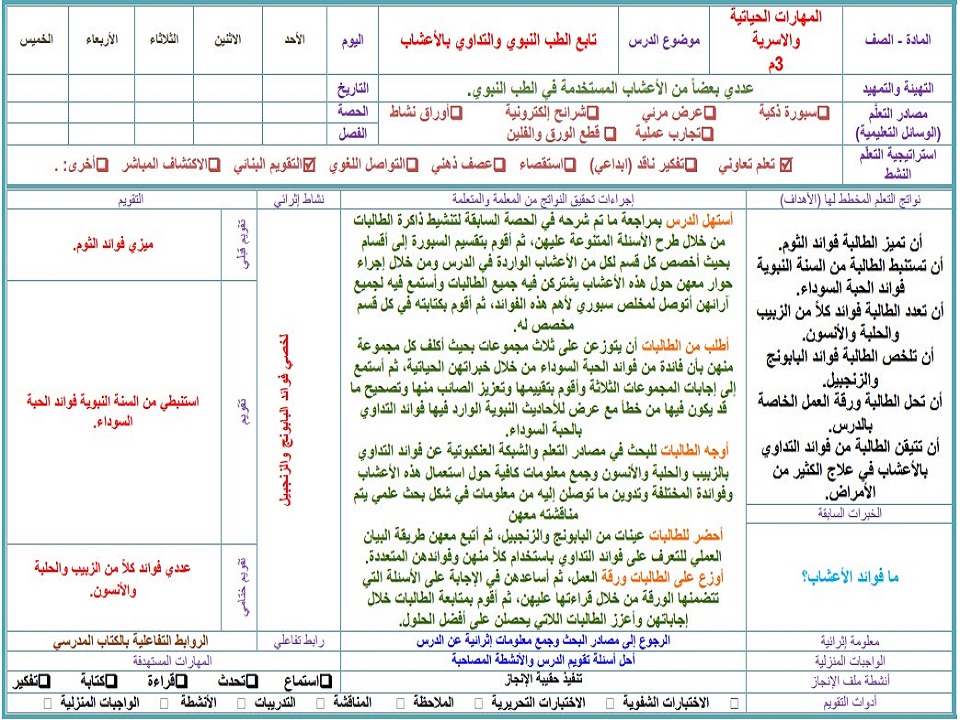 المادة - الصف
المهارات الحياتية
والاسرية
3م
موضوع الدرس
تابع الطب النبوي والتداوي بالأعشاب
اليوم
الأحد
الاثنين
الثلاثاء
الأربعاء
الخميس
التهيئة والتمهيد
عددي بعضاً من الأعشاب المستخدمة في الطب النبوي.
التاريخ
مصادر التعلّم
(الوسائل التعليمية)
❑سبورة ذكية ❑عرض مرئي ❑شرائح إلكترونية ❑أوراق نشاط
❑تجارب عملية ❑ قطع الورق والفلين
الحصة
الفصل
استراتيجية التعلّم
النشط
☑ تعلم تعاوني ❑تفكير ناقد (ابداعي) ❑استقصاء ❑عصف ذهني ❑التواصل اللغوي ☑التقويم البنائي ❑الاكتشاف المباشر ❑أخرى: .
نواتج التعلم المخطط لها (الأهداف)
إجراءات تحقيق النواتج من المعلمة والمتعلمة
نشاط إثرائي
التقويم
أن تميز الطالبة فوائد الثوم.
أن تستنبط الطالبة من السنة النبوية
فوائد الحبة السوداء.
أن تعدد الطالبة فوائد كلاً من الزبيب
والحلبة والأنسون.
أن تلخص الطالبة فوائد البابونج
والزنجبيل.
أن تحل الطالبة ورقة العمل الخاصة
بالدرس.
أن تتيقن الطالبة من فوائد التداوي
بالأعشاب في علاج الكثير من
الأمراض.
الخبرات السابقة
ما فوائد الأعشاب؟
أستهل الدرس بمراجعة ما تم شرحه في الحصة السابقة لتنشيط ذاكرة الطالبات
من خلال طرح الأسئلة المتنوعة عليهن، ثم أقوم بتقسيم السبورة إلى أقسام
بحيث أخصص كل قسم لكل من الأعشاب الواردة في الدرس ومن خلال إجراء
حوار معهن حول هذه الأعشاب يشتركن فيه جميع الطالبات وأستمع فيه لجميع
آرائهن أتوصل لمخلص سبوري لأهم هذه الفوائد، ثم أقوم بكتابته في كل قسم
مخصص له.
أطلب من الطالبات أن يتوزعن على ثلاث مجموعات بحيث أكلف كل مجموعة
منهن بأن فائدة من فوائد الحبة السوداء من خلال خبراتهن الحياتية، ثم أستمع
إلى إجابات المجموعات الثلاثة وأقوم بتقييمها وتعزيز الصائب منها وتصحيح ما
قد يكون فيها من خطأ مع عرض للأحاديث النبوية الوارد فيها فوائد التداوي
بالحبة السوداء.
أوجه الطالبات للبحث في مصادر التعلم والشبكة العنكبوتية عن فوائد التداوي
بالزبيب والحلبة والأنسون وجمع معلومات كافية حول استعمال هذه الأعشاب
وفوائدة المختلفة وتدوين ما توصلن إليه من معلومات في شكل بحث علمي يتم
مناقشته معهن
أحضر للطالبات عينات من البابونج والزنجبيل، ثم أتبع معهن طريقة البيان
العملي للتعرف على فوائد التداوي باستخدام كلاً منهن وفوائدهن المتعددة.
أوزع على الطالبات ورقة العمل، ثم أساعدهن في الإجابة على الأسئلة التي
تتضمنها الورقة من خلال قراءتها عليهن، ثم أقوم بمتابعة الطالبات خلال
إجاباتهن وأعزز الطالبات اللاتي يحصلن على أفضل الحلول.
لخصي فوائد البابونج والزنجبيل
تقويم قبلي
ميزي فوائد الثوم.
تقويم
استنبطي من السنة النبوية فوائد الحبة
السوداء.
تقويم ختامي
عددي فوائد كلاً من الزبيب والحلبة
والأنسون.
معلومة إثرائية
الرجوع إلى مصادر البحث وجمع معلومات إثرائية عن الدرس
رابط تفاعلي
الروابط التفاعلية بالكتاب المدرسي
الواجبات المنزلية
أحل أسئلة تقويم الدرس والأنشطة المصاحبة
المهارات المستهدفة
أنشطة ملف الإنجاز
تنفيذ حقيبة الإنجاز
❑استماع ❑تحدث ❑قراءة ❑كتابة ❑تفكير
أدوات التقويم
□ الاختبارات الشفوية □ الاختبارات التحريرية □ الملاحظة □ المناقشة □ التدريبات □ الأنشطة □ الواجبات المنزلية □